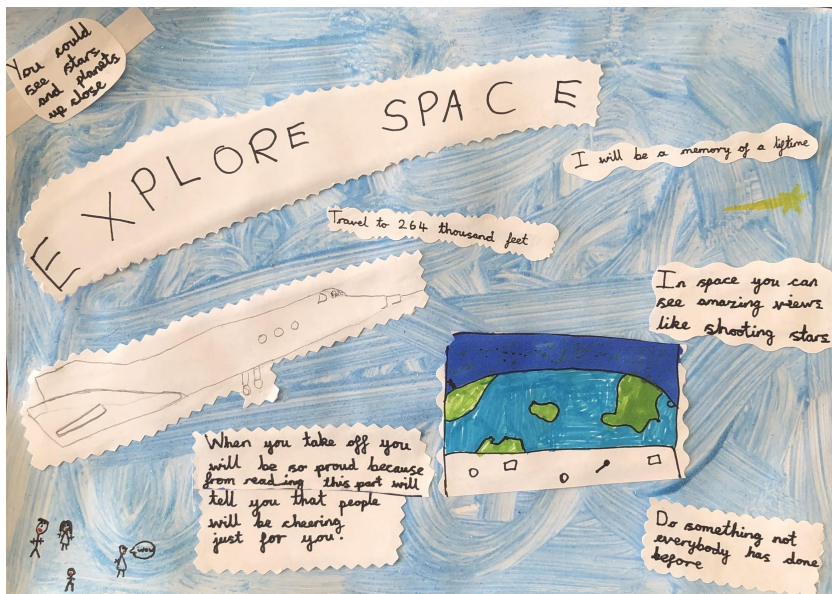 You could
see stars
and planets
up close
EXPLORE SPACE
I will be a memory of a liftime
Travel to 264 thousand feet
In space you can
see amazing views
like shooting stars
When you take off you
will be so proud because
from reading this part will
tell you that people
will be cheering
just for you!
wow
Do something not
everybody has done
before